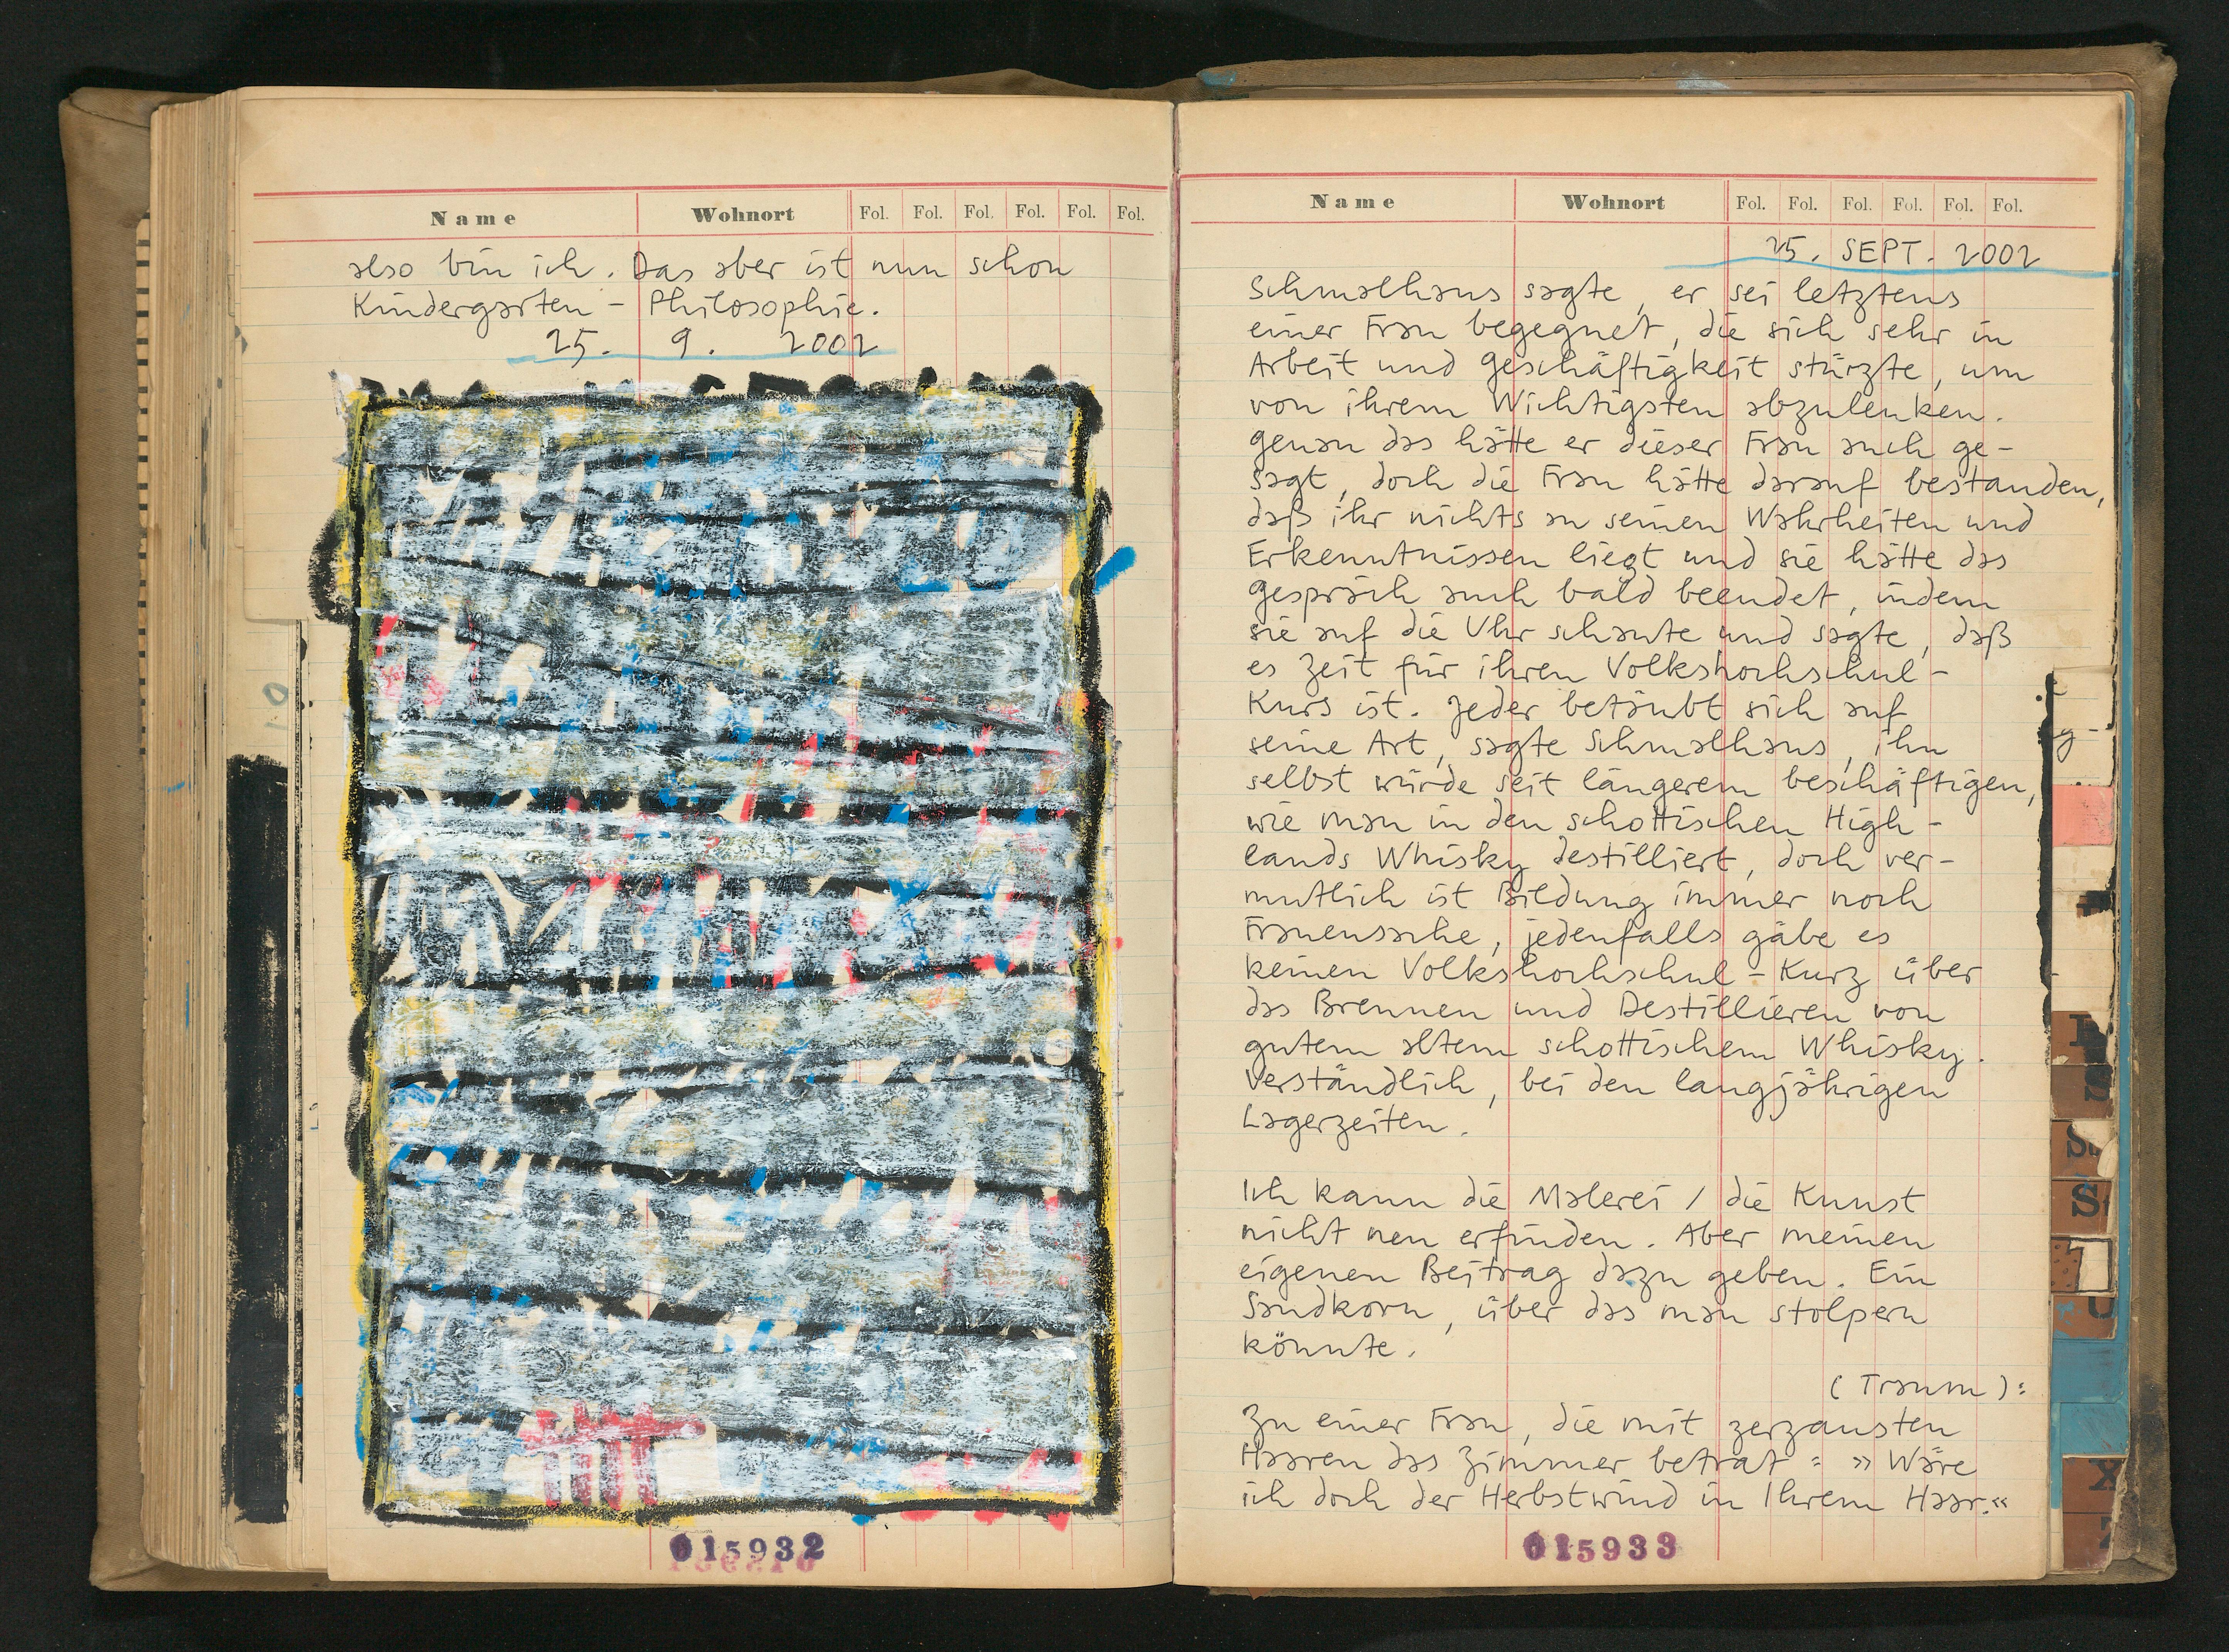 Name Wohnort Fol. Fol. Fol. Fol. Fol. Fol.
also bin ich. Das aber ist nun schon
Kindergarten - Philosophie.
25. 9. 2002
015932
Name Wohnort Fol. Fol. Fol. Fol. Fol. Fol.
25. SEPT. 2002
Schmalhans sagte, er sei letztens
einer Frau begegnet, die sich sehr in
Arbeit und Geschäftigkeit stürzte, um
von ihrem Wichtigsten abzulenken.
Genau das hätte er dieser Frau auch ge-
sagt, doch die Frau hätte darauf bestanden,
daß ihr nichts an seinen Wahrheiten und
Erkenntnissen liegt und sie hätte das
Gespräch auch bald beendet, indem
sie auf die Uhr schaute und sagte, daß
es Zeit für ihren Volkshochschul-
Kurs ist. Jeder betäubt sich auf
seine Art, sagte Schmalhans, ihn
selbst würde seit längerem beschäftigen,
wie man in den schottischen High-
lands Whisky destilliert, doch ver-
mutlich ist Bildung immer noch
Frauensache, jedenfalls gäbe es
keinen Volkshochschul-Kurz über
das Brennen und Destillieren von
gutem altem schottischem Whisky.
Verständlich, bei den langjährigen
Lagerzeiten.
Ich kann die Malerei / die Kunst
nicht neu erfinden. Aber meinen
eigenen Beitrag dazu geben. Ein
Sandkorn, über das man stolpern
könnte.
(Traum):
Zu einer Frau, die mit zerzausten
Haaren das Zimmer betrat: »Wäre
ich doch der Herbstwind in Ihrem Haar.«
015933